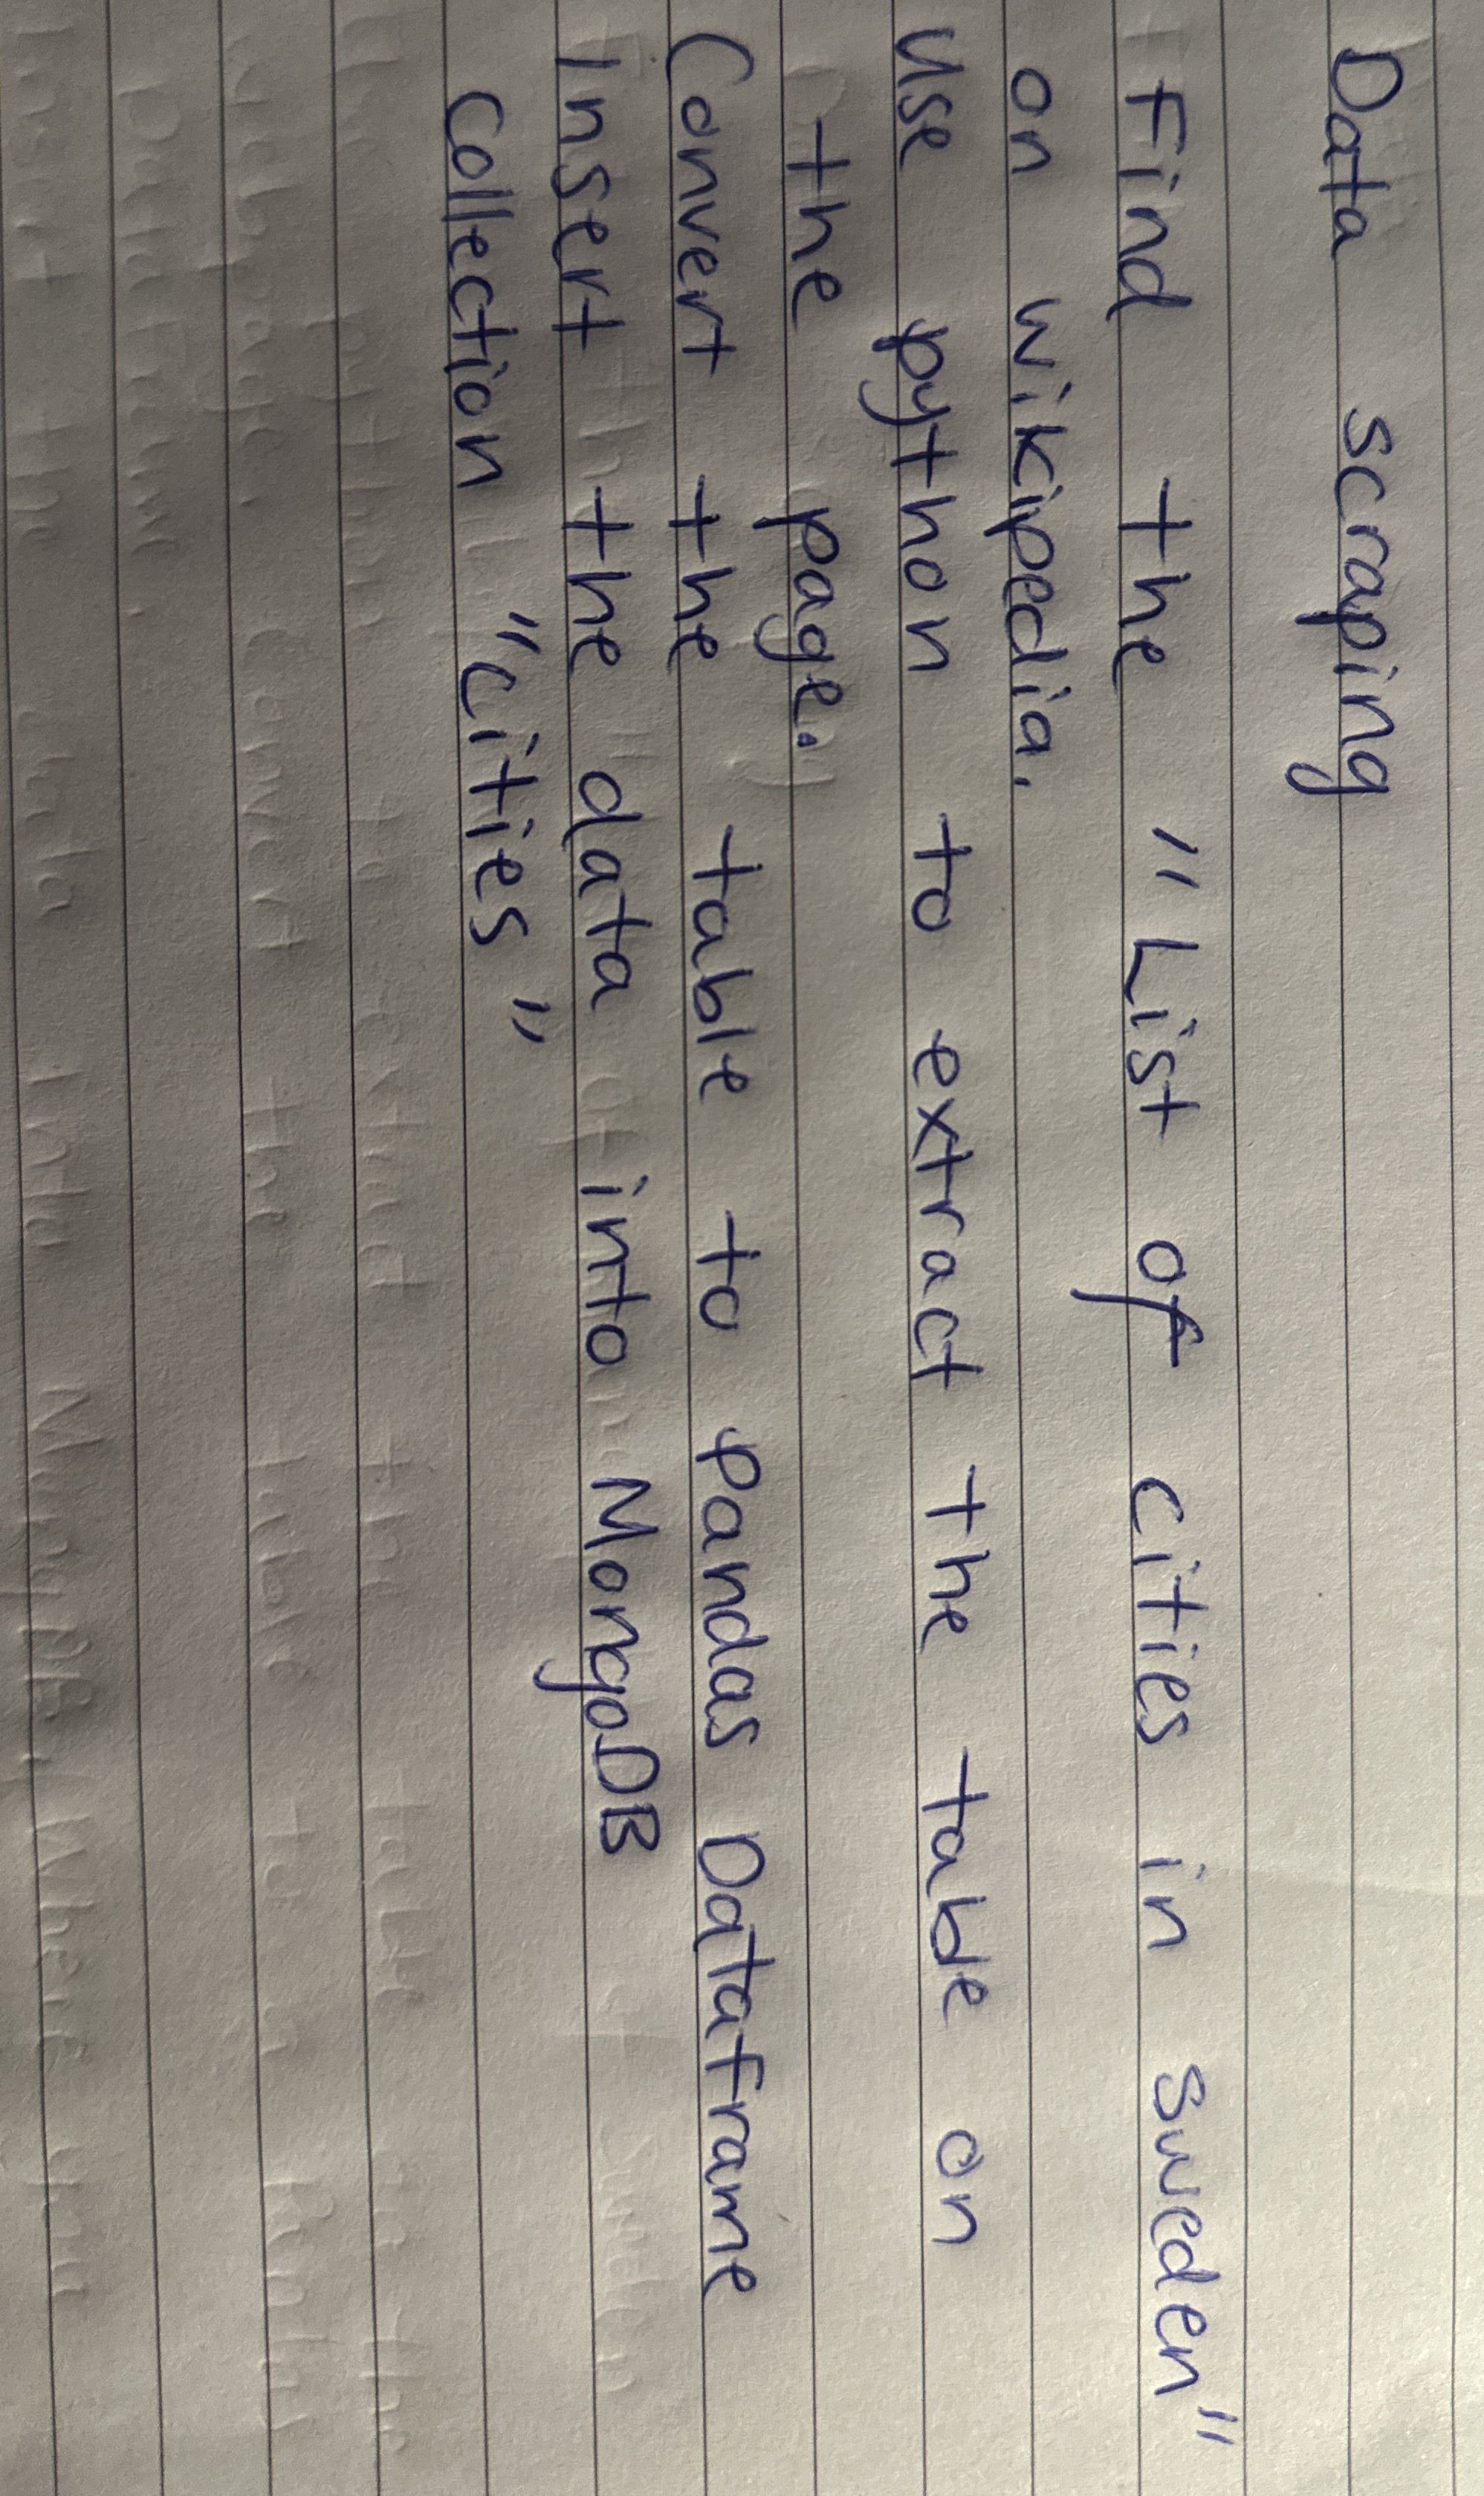 Data scraping
Find the "List of cities in Sweden"
on wikipedia.
Use python to extract the table on
the page.
Convert the table to pandas Dataframe
Insert the data into MongoDB
collection "cities"